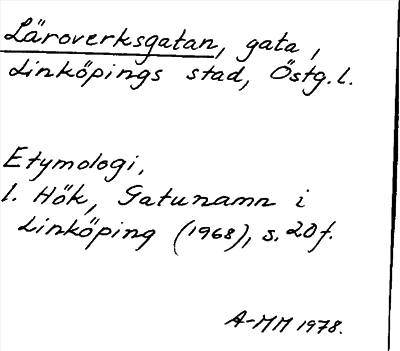 Läroverksgatan, gata,
Linköpings stad, Östg.l.
Etymologi,
l. Hök, Gatunamn i
Linköping (1968), s. 20f.
A-MM 1978.